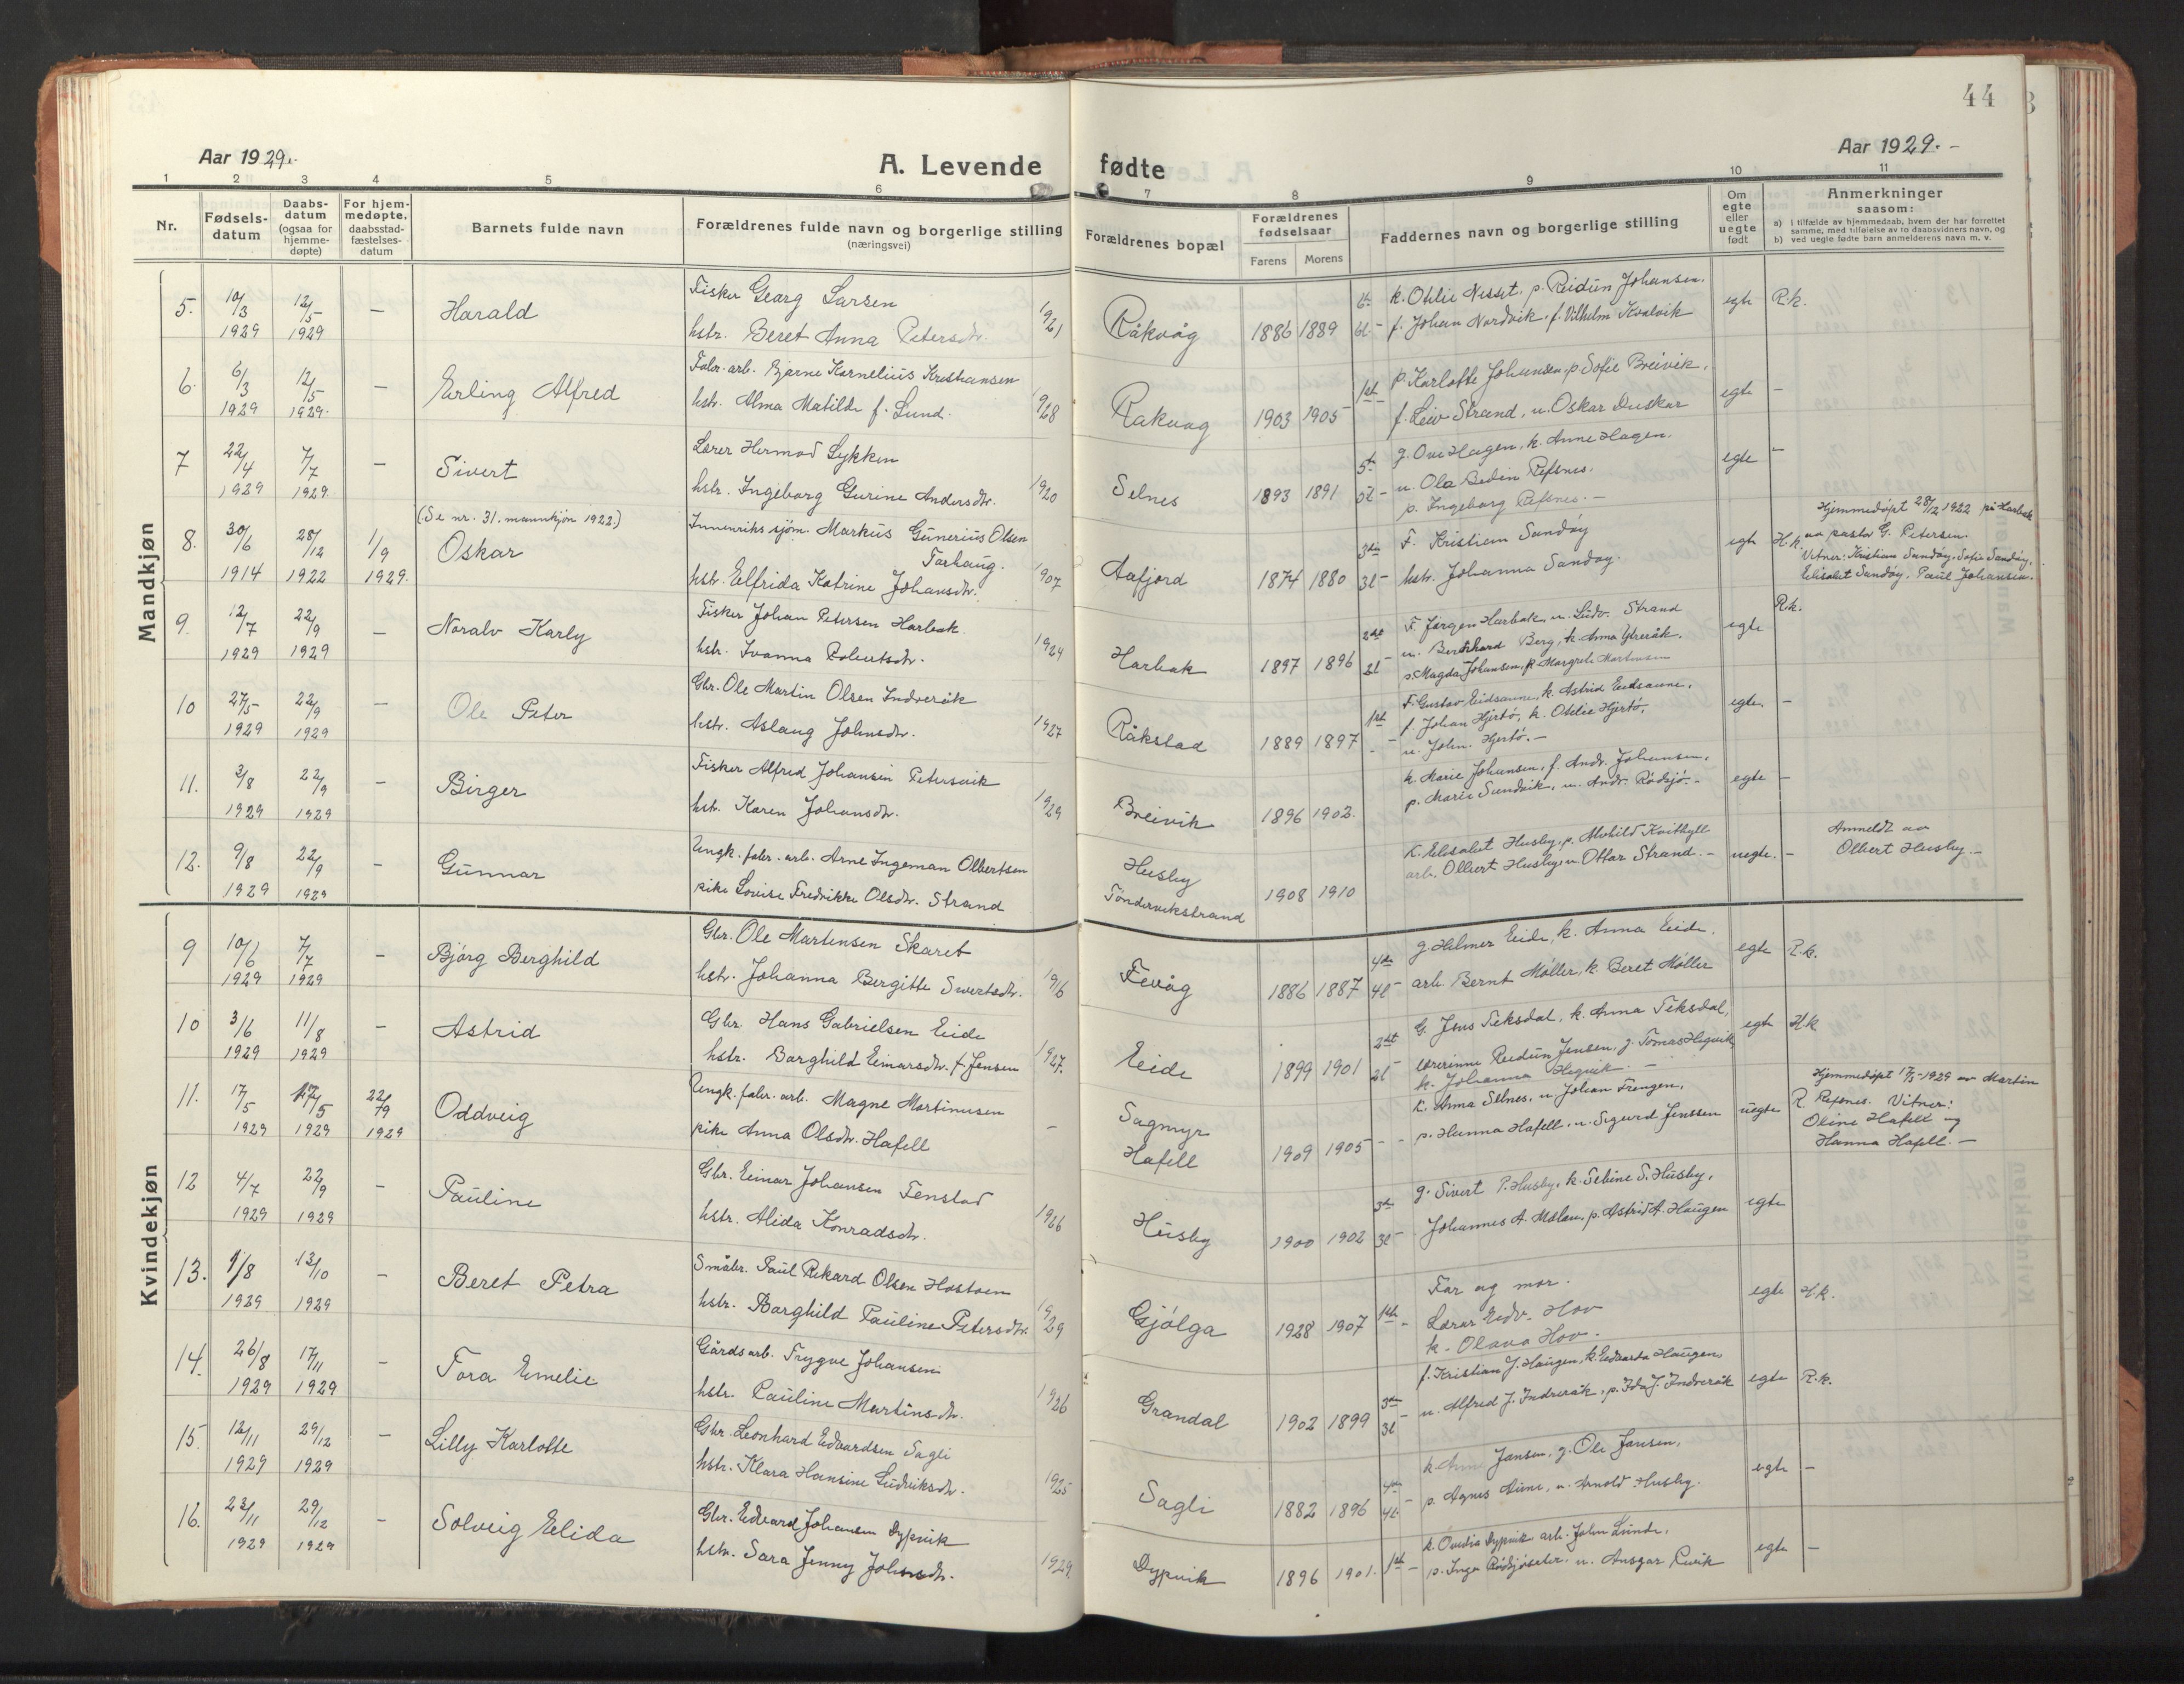 44
Aar 1929.
A. Levende fødte
Aar 1929. -
1 2 3 4 5 6 7 8 9 10 11
Nr.
Fødsels-
datum
Daabs-
datum
(ogsaa for
hjemme-
døpte)
For hjem-
medøpte,
daabsstad-
fæstelses-
datum
Barnets fulde navn
Forældrenes fulde navn og borgerlige stilling
(næringsvei)
Forældrenes bopæl
Forældrenes
fødselsaar
Farens Morens
Faddernes navn og borgerlige stilling
Om
egte
eller
uegte
født
Anmerkninger
saasom:
a) i tilfælde av hjemmedaab, hvem der har forrettet
samme, med tilføielse av to daabsvidners navn, og
b) ved uegte fødte barn anmelderens navn m. v.
Mandkjøn
5. 10/3 1929 12/5 1929 - Harald
Fisker Georg Larsen
hstr. Beret Anna Petersdtr. 1921
Råkvåg 1886 1889
k. Otelie Nesset, p. Reidun Johansen,
f. Johan Nordvik, f. Vilhelm Kvalvik
egte R.k.
6. 6/3 1929 12/5 1929. - Erling Alfred
Fabr. arb. Bjarne Kornelius Kristiansen
hstr. Alma Matilde f. Lund. 1928
Råkvåg 1903 1905 1st
p. Karlotte Johansen, p. Sofie Breivik,
f. Leiv Strand, u. Oskar Duskar
egte -
7 22/4 1929 7/7 1929. - Sivert
Lærer Hermod Lykken
hstr. Ingeborg Gurine Andersdtr. 1920
Selnes 1893 1891
g. Ove Hagen, k. Anne Hagen,
u. Ola Bedin Refsnes,
p. Ingeborg Refsnes. -
egte -
(Se nr. 31. mannkjøn 1922.)
8. 30/6 1914 28/12 1922 1/9 1929. Oskar
Innenriks sjøm. Markus Gunerius Olsen
Tarhaug.
hstr. Elfrida Katrine Johansdtr. 1907
Aafjord 1874 1880
F. Kristian Sundøy
hstr. Johanna Sandøy.
egte H.k.
Hjemmedøpt 28/12 1922 på Harbak
av pastor G. Petersen.
Vitner: Kristian Sandøy, Sofie Sandøy,
Elisabet Sundøy, Paul Johansen.
9. 12/7 1929 22/9 1929 - Noralv Karly
Fisker Johan Petersen Harbak
hstr. Ivanna Robertsdtr. 1924
Harbak 1897 1896
F. Jørgen Harbak, u. Ludv. Strand
u. Bernhard Berg, k. Anna Ytreråk,
p. Magda Johansen, p. Margrete Martensen
egte R.k.
10 27/5 1929 22/9 1929 - Ole Peter
Gbr. Ole Martin Olsen Indveråk
hstr. Aslaug Johnsdtr. 1927
Råkstad 1889 1897 1st
F. Gustav Eidsaune, k. Astrid Eidsaune,
f. Johan Hjertø, k. Otelie Hjertø,
u. John Hjertø. -
egte. -
11. 3/8 1929 22/9 1929 - Birger
Fisker Alfred Johansen Petersvik
hstr. Karen Johansdtr. 1929
Breivik 1896 1902.
k. Marie Johansen, f. Andr. Johansen,
p. Marie Sundvik, u. Andr. Rødsjø. -
egte -
12. 9/8 1929 22/9 1929 - Gunnar
Ungk. fabr. arb. Arne Ingeman Olbertsen
pike Louise Fredrikke Olsdtr. Strand
Husby
Tøndervikstrand 1908 1910
k. Elisabet Husby, p. Alvhild Kvithyll
arb. Olbert Husby, u. Ottar Strand. -
uegte. -
Anmeldt av
Olbert Husby. -
Kvindekjøn
9 10/6 1929 7/7 1929 - Bjørg Berghild
Gbr. Ole Martensen Skaret
hstr. Johanna Bergitte Sivertsdtr. 1916
Fevåg 1886 1887
g. Helmer Eide, k. Anna Eide,
arb. Bernt Møller, k. Beret Møller
egte R.k.
10 3/6 1929 11/8 1929 - Astrid
Gbr. Hans Gabrielsen Eide
hstr. Borghild Einarsdtr. f. Jensen 1927.
Eide 1899 1901
G. Jens Teksdal, k. Anna Teksdal,
lærerinne Reidun Jensen, g. Tomas Hegvik
k. Johanna Hegvik. -
egte H.k
11. 17/5 1929 17/5 1929 22/9 1929 Oddveig
Ungk. fabr. arb. Magne Martinusen
pike Anna Olsdtr. Hafell -
Sagmyr
Hafell 1909 1905 -
k. Anna Selnes, u. Johan Frengen,
p. Hanna Hafell, u. Sigurd Jenssen
uegte
Hjemmedøpt 17/5 1929 av Martin
R. Refsnes. Vitner:
Oline Hafell og
Hanna Hafell. -
12 4/7 1929 22/9 1929 - Pauline
Gbr. Einar Johansen Fenstad
hstr. Alida Konradsdtr. 1926
Husby 1900 1902
g. Sivert P. Husby, k. Sebine S. Husby,
Johannes A. Mælan, p. Astrid A. Haugen
egte
13. 9/8 1929 13/10 1929 - Beret Petra
Småbr. Paul Rikard Olsen Hostoen
hstr. Borghild Pauline Petersdtr. 1929
Gjølga 1928 1907 1st -
Far og mor.
Lærer Edv. Hov
k. Olava Hov.
egte H.k.
14. 26/8 1929 17/11 1929 - Tora Emelie
Gårdsarb. Trygve Johansen
hstr. Pauline Martinsdtr. 1926
Grandal 1902 1899
f. Kristian J. Haugen, k. Edvarda Haugen
u. Alfred J. Indreråk, p. Ida J. Indreråk
egte R.k.
15. 12/11 1929 29/12 1929 - Lilly Karlotte
Gbr. Leonhard Edvardsen Sagli
hstr. Klara Hansine Ludviksdtr. 1925
Sagli 1882 1896
k. Jansen, g. Ole Jansen,
p. Agnes Aune, u. Arnold Husby.
egte -
16. 23/11 1929 29/12 1929 - Solveig Elida
Gbr. Edvard Johansen Dypvik
hstr. Sara Jenny Johnsdtr. 1929.
Dypvik 1896 1901. 1st -
k. Ovedia Dypvik, arb. John Lunde,
p. Inga Rødsjøseter, u. Ansgar Ervik
egte -